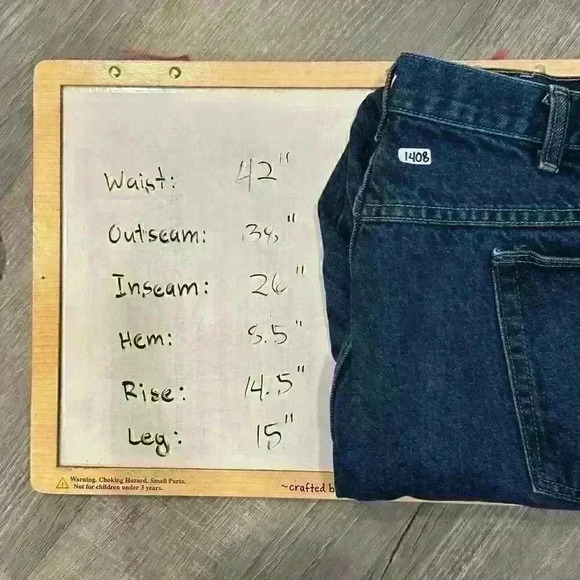 Waist: 42"
Outseam: 39"
Inseam: 26"
Hem: 8.5"
Rise: 14.5"
Leg: 15"
1408
Warning. Choking Hazard. Small Parts.
Not for children under 3 years.
~crafted b